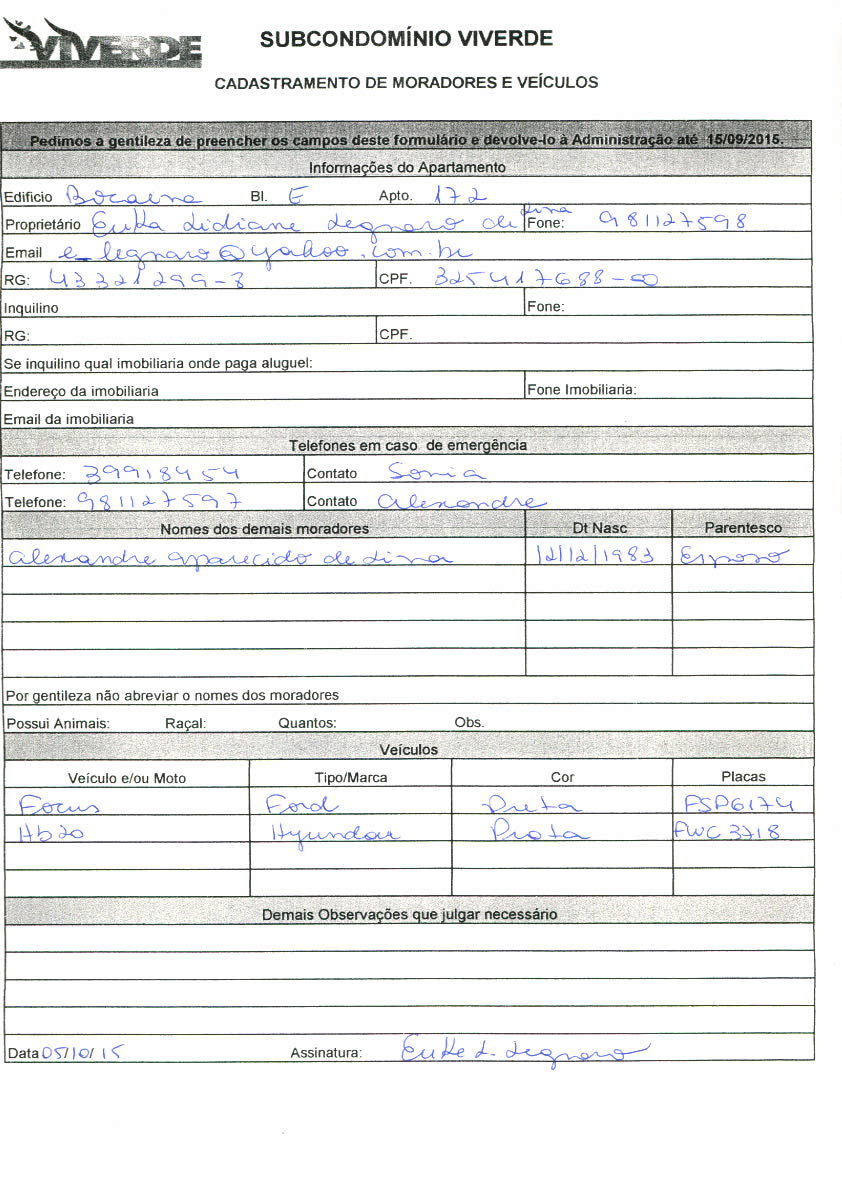 VIVERDE
SUBCONDOMÍNIO VIVERDE
CADASTRAMENTO DE MORADORES E VEÍCULOS
Pedimos a gentileza de preencher os campos deste formulário e devolve-lo à Administração até 15/09/2015.
Informações do Apartamento
Edificio Bocaena Bl. E Apto. 172
Proprietário Lidiane Legnaro de Lima Fone: 981127598
Email e_legnaro@yahoo.com.br
RG: 43321299-8 CPF.
Inquilino Fone:
RG: CPF.
Se inquilino qual imobiliaria onde paga aluguel:
Endereço da imobiliaria Fone Imobiliaria:
Email da imobiliaria
Telefones em caso de emergência
Telefone: 39918454 Contato Sonia
Telefone: 981127597 Contato Alexandre
Nomes dos demais moradores Dt Nasc Parentesco
Alexandre Aparecido de Lima 12/12/1983 Esposo
Por gentileza não abreviar o nomes dos moradores
Possui Animais: Raçal: Quantos: Obs.
Veículos
Veículo e/ou Moto Tipo/Marca Cor Placas
Focus Ford Preta FSP6174
Hb20 Hyundai Prata FWC3718
Demais Observações que julgar necessário
Data 05/10/15 Assinatura: L. Legnaro